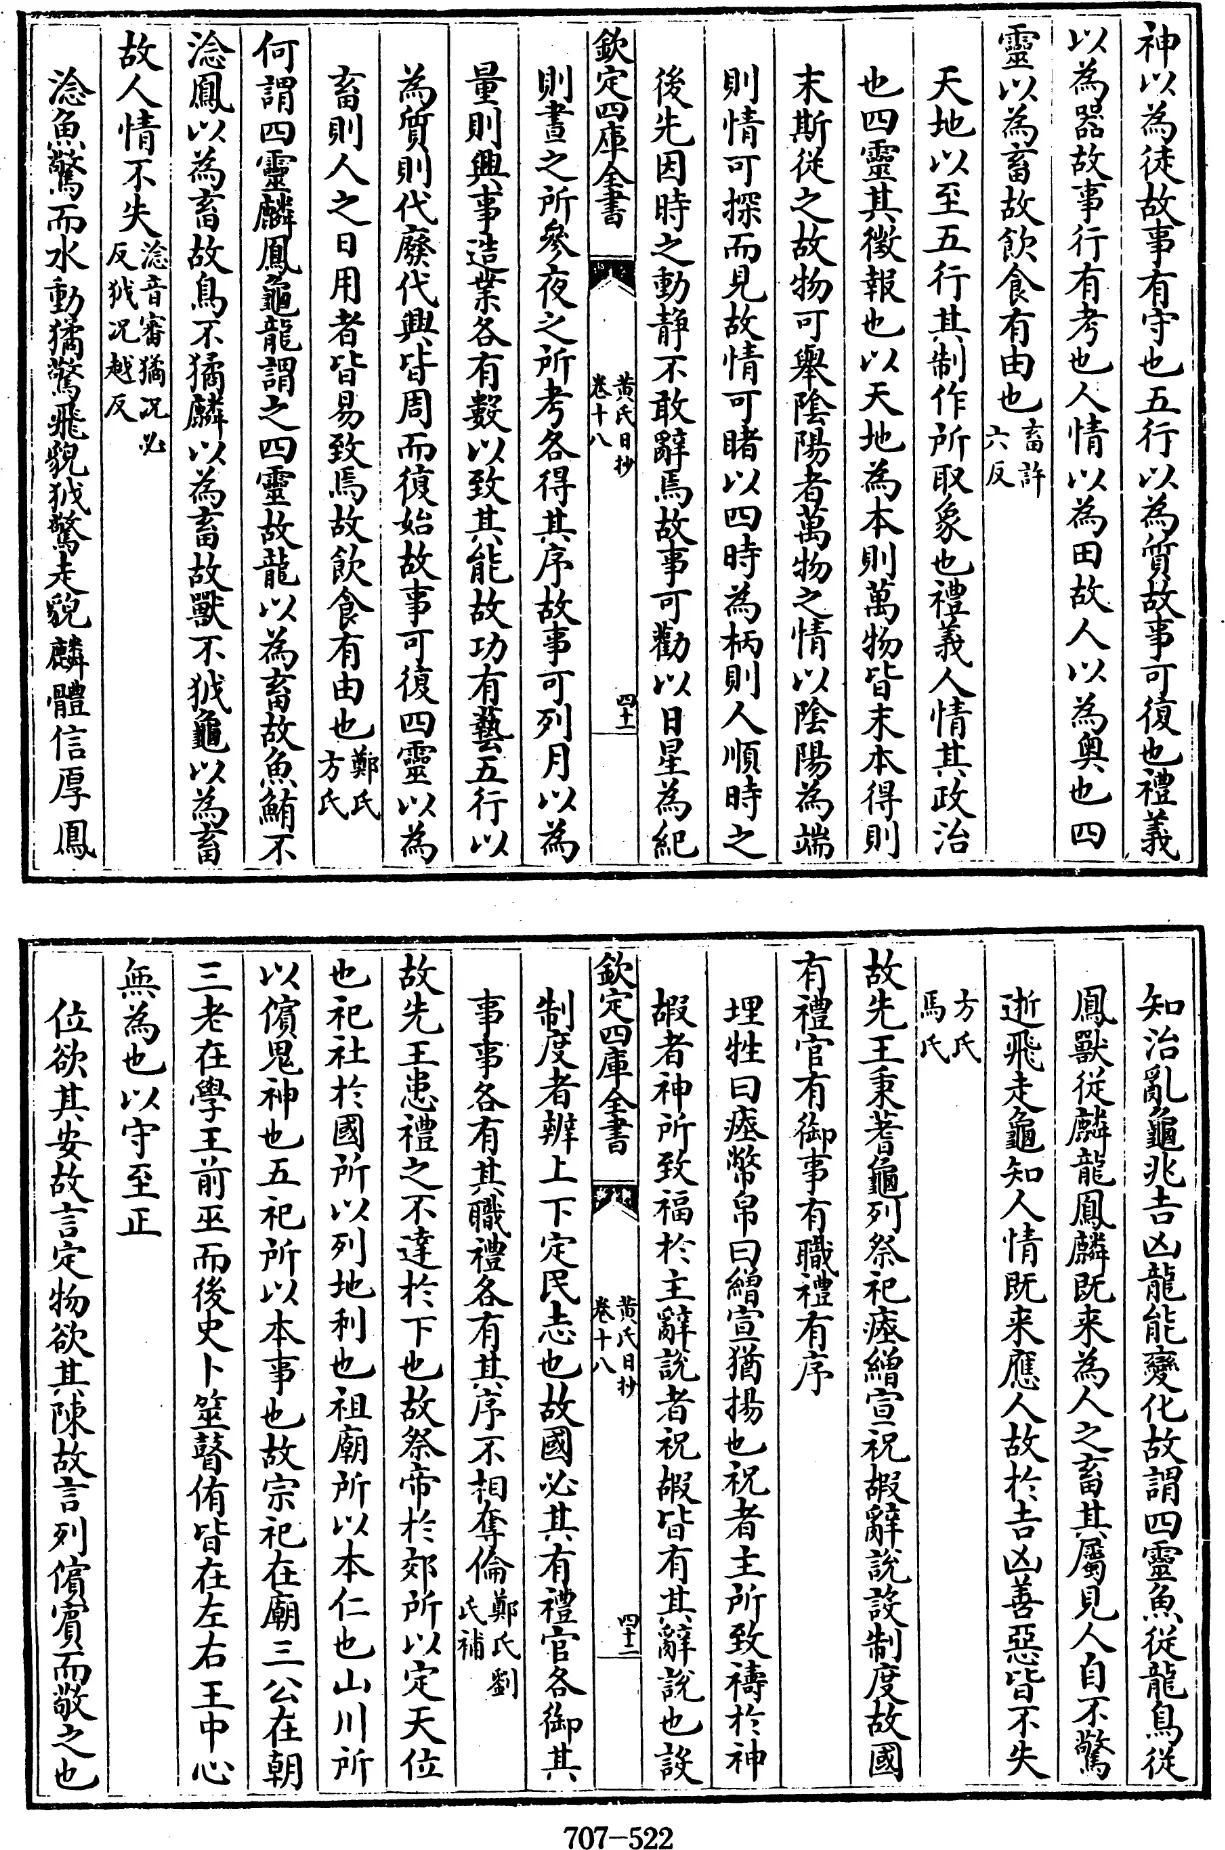 神以為徒故事有守也五行以為質故事可復也禮義
以為器故事行有考也人情以為田故人以為奥也四
靈以為畜故飲食有由也畜許六反
天地以至五行其制作所取象也禮義人情其政治
也四靈其徵報也以天地為本則萬物皆末本得則
末斯從之故物可舉陰陽者萬物之情以陰陽為端
則情可探而見故情可睹以四時為柄則人順時之
後先因時之動靜不敢辭焉故事可勸以日星為紀
欽定四庫全書 黄氏日抄卷十八 四十一
則晝之所參夜之所考各得其序故事可列月以為
量則興事造業各有數以致其能故功有藝五行以
為質則代廢代興皆周而復始故事可復四靈以為
畜則人之日用者皆易致焉故飲食有由也鄭氏方氏
何謂四靈麟鳳龜龍謂之四靈故龍以為畜故魚鮪不
淰鳳以為畜故鳥不獝麟以為畜故獸不狘龜以為畜
故人情不失淰音審獝况必反狘况越反
淰魚驚而水動獝驚飛貌狘驚走貌麟體信厚鳳
知治亂龜兆吉凶龍能變化故謂四靈魚從龍鳥從
鳳獸從麟龍鳳麟既来為人之畜其屬見人自不驚
逝飛走龜知人情既来應人故於吉凶善惡皆不失
方氏馬氏
故先王秉蓍龜列祭祀瘞繒宣祝嘏辭說設制度故國
有禮官有御事有職禮有序
埋牲曰瘞幣帛曰繒宣猶揚也祝者主所致禱於神
嘏者神所致福於主辭說者祝嘏皆有其辭說也設
欽定四庫全書 黄氏日抄卷十八 四十二
制度者辨上下定民志也故國必其有禮官各御其
事事各有其職禮各有其序不相奪倫鄭氏劉氏補
故先王患禮之不達於下也故祭帝於郊所以定天位
也祀社於國所以列地利也祖廟所以本仁也山川所
以儐鬼神也五祀所以本事也故宗祀在廟三公在朝
三老在學王前巫而後史卜筮瞽侑皆在左右王中心
無為也以守至正
位欲其安故言定物欲其陳故言列儐賓而敬之也
707-522